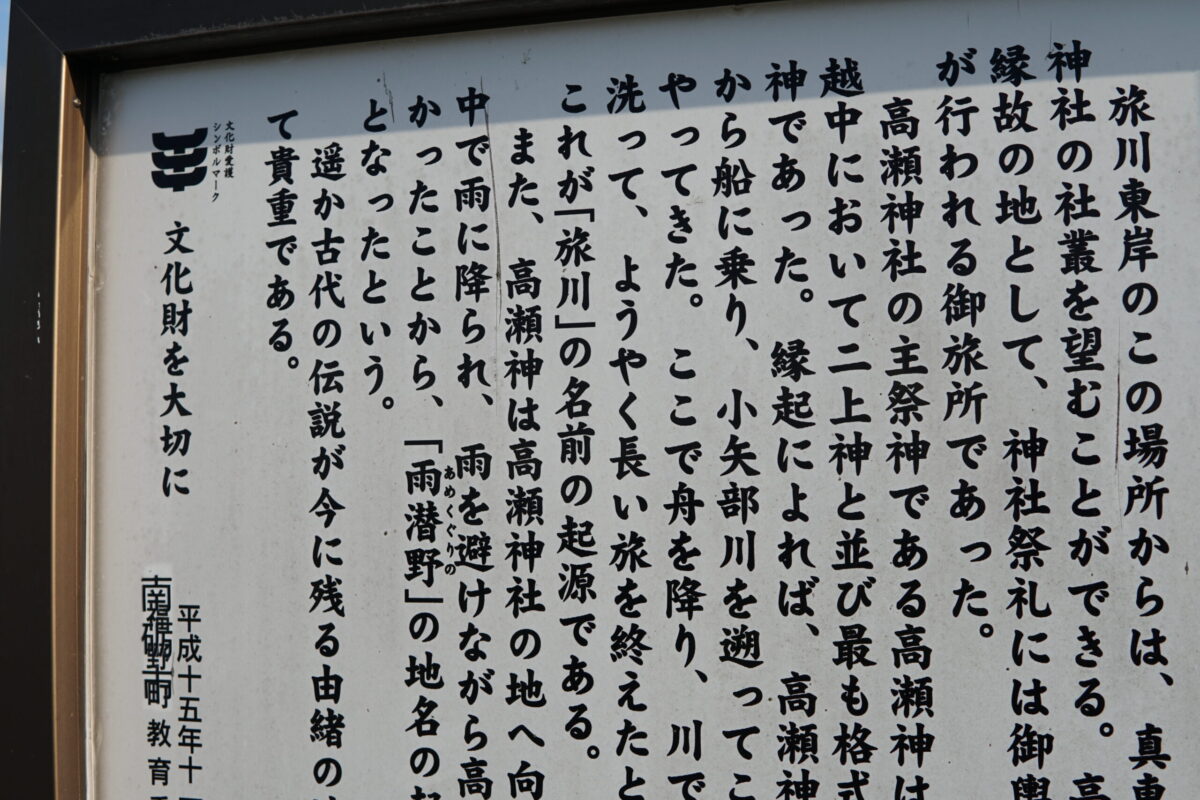 旅川東岸のこの場所からは、真東
神社の社叢を望むことができる。高
縁故の地として、神社祭礼には御輿
が行われる御旅所であった。
高瀬神社の主祭神である高瀬神は
越中において二上神と並び最も格式
神であった。縁起によれば、高瀬神
から船に乗り、小矢部川を遡ってこ
やってきた。ここで舟を降り、川で
洗って、ようやく長い旅を終えたと
これが「旅川」の名前の起源である。
また、高瀬神は高瀬神社の地へ向
中で雨に降られ、雨を避けながら高
かったことから、「雨潜野」の地名の起
あめくぐりの
となったという。
遥か古代の伝説が今に残る由緒の
て貴重である。
文化財愛護
シンボルマーク
文化財を大切に
平成十五年十
教育